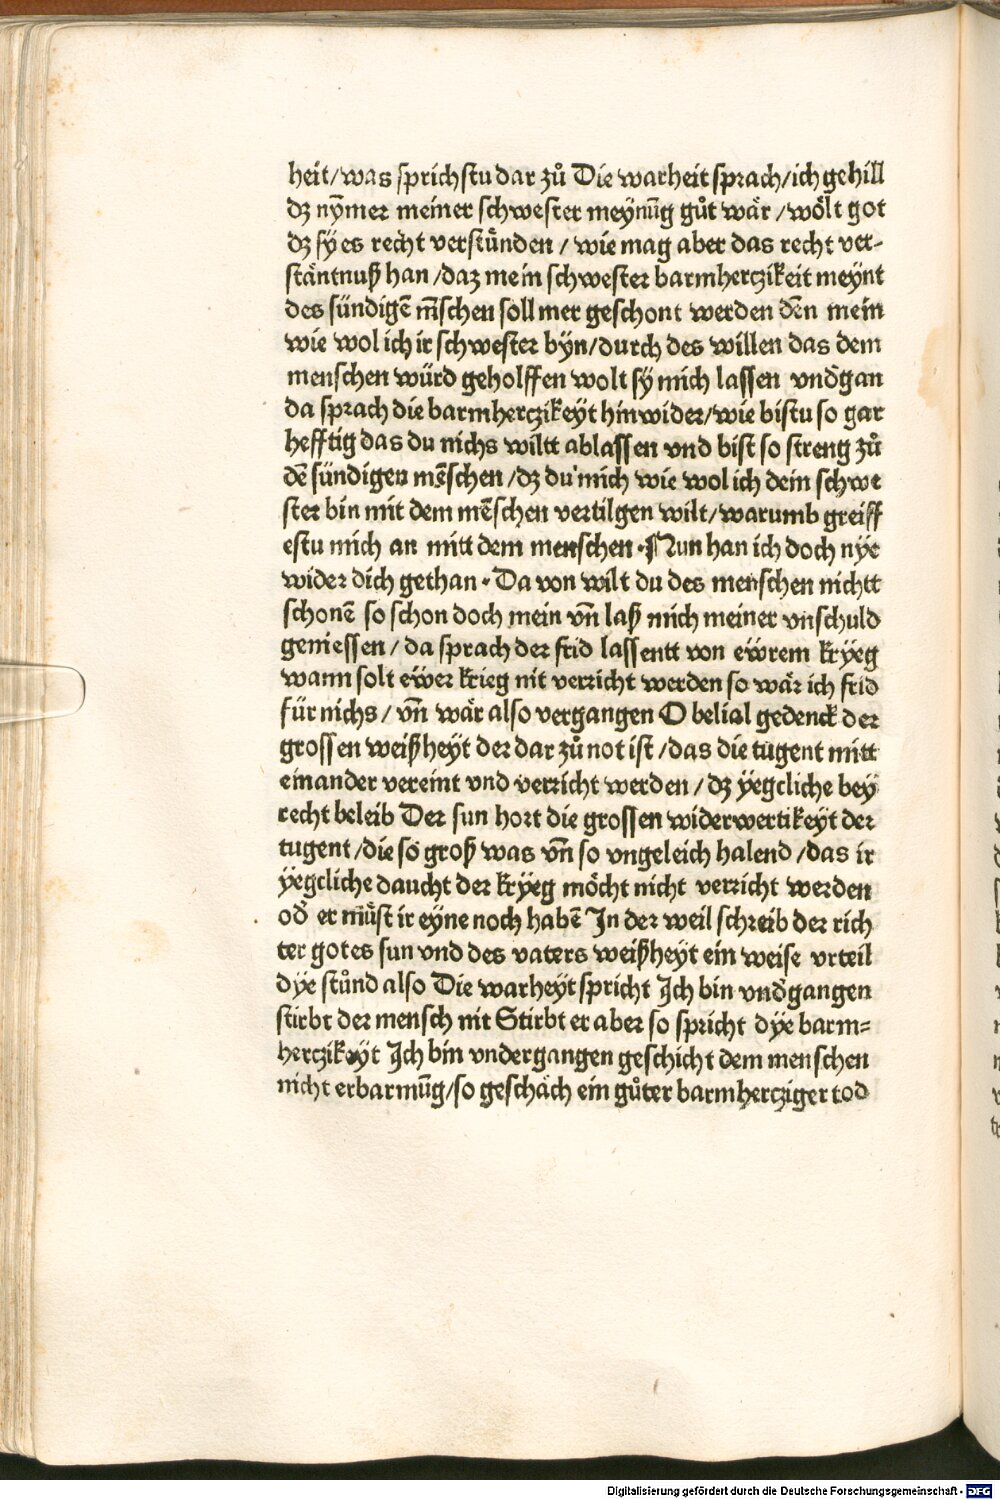 heit/was sprichstu dar zů Die warheit sprach/ich gehill
dz nÿmer meiner schwester meÿnūg gůt wär /wölt got
dz sÿ es recht verstünden / wie mag aber das recht ver-
stäntnuß han /daz mein schwester barmherczikeit meÿnt
des sündigē m̄schen soll mer geschont werden dēn mein
wie wol ich ir schwester bÿn/durch des willen das dem
menschen würd geholffen wolt sÿ mich lassen vnd̄gan
da sprach die barmherczikeÿt hin wider/wie bistu so gar
hefftig das du nichs wiltt ablassen vnd bist so streng zů
dē sündigen mēschen /dz du mich wie wol ich dein schwe
ster bin mit dem mēschen vertilgen wilt/warumb greiff
estu mich an mitt dem menschen · Nun han ich doch nÿe
wider dich gethan · Da von wilt du des menschen nichtt
schonē so schon doch mein vn̄ laß mich meiner vnschuld
geniessen / da sprach der frid lassentt von eẅrem krÿeg
wann solt eẅer krieg nit verricht werden so wär ich frid
für nichs / vn̄ wär also vergangen O belial gedenck der
grossen weißheÿt der dar zů not ist /das die tugent mitt
einander vereint vnd verricht werden / dz ÿegcliche beÿ
recht beleib Der sun hort die grossen widerwertikeÿt der
tugent /die so groß was vn̄ so vngeleich halend /das ir
ÿegcliche daucht der krÿeg möcht nicht verricht werden
od̄ er müst ir eÿne noch habē In der weil schreib der rich
ter gotes sun vnd des vaters weißheÿt ein weise vrteil
dÿe stůnd also Die warheÿt spricht Ich bin vnd̄gangen
stirbt der mensch nit Stirbt er aber so spricht dÿe barm=
herczikeÿt Ich bin vndergangen geschicht dem menschen
nicht erbarmūg/so geschäch ein gůter barmhercziger tod
Digitalisierung gefördert durch die Deutsche Forschungsgemeinschaft - DFG